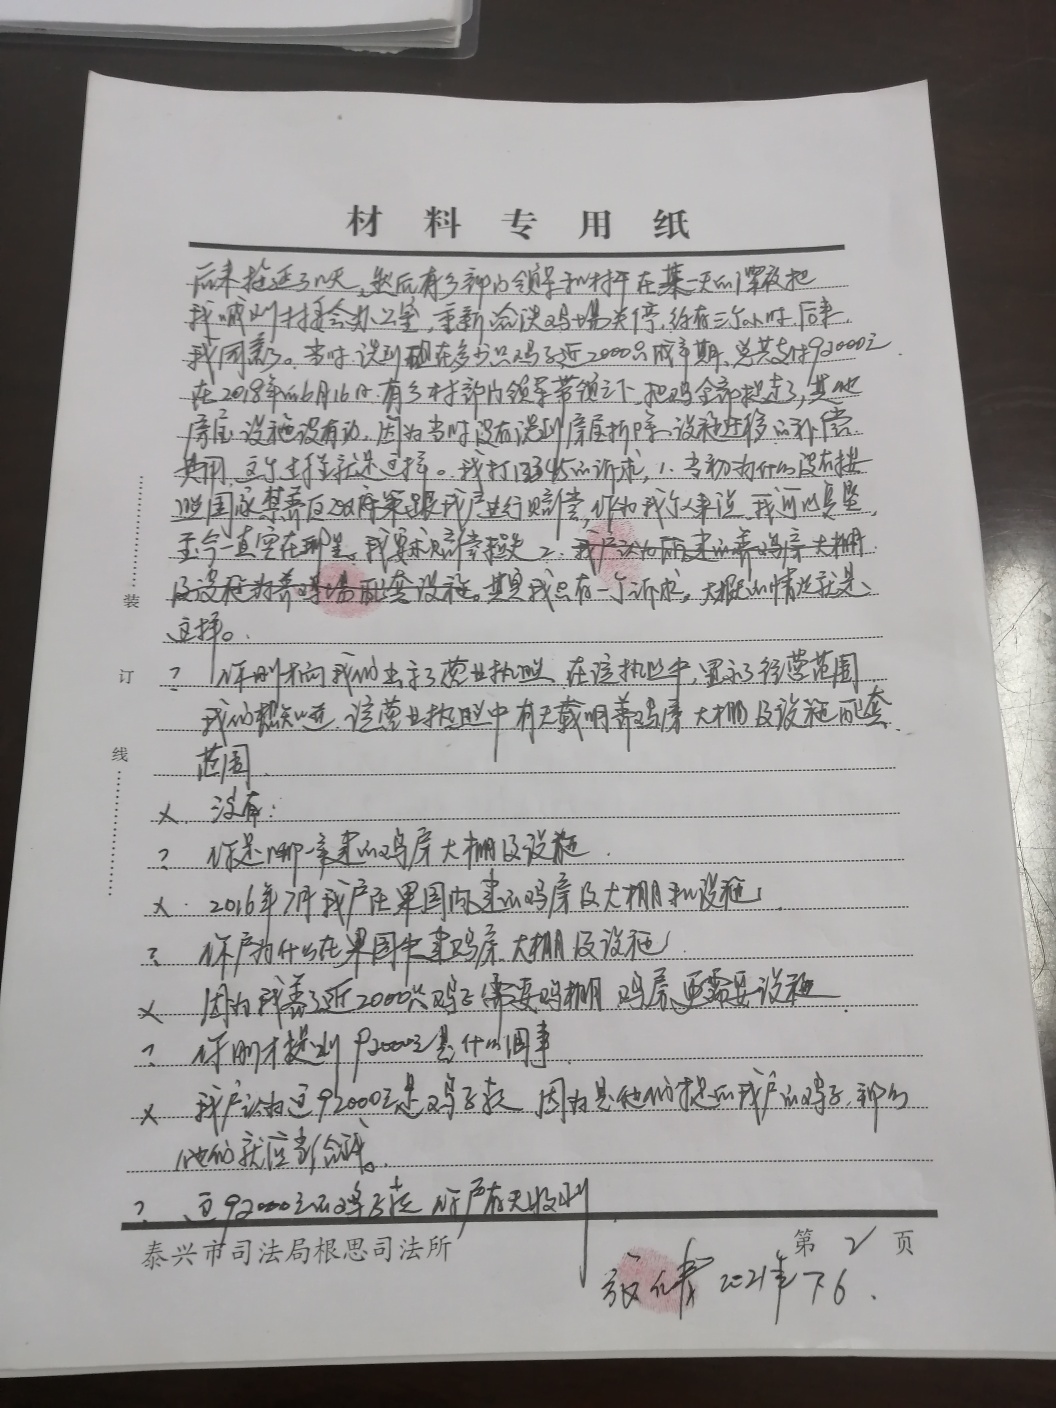 材料专用纸
后来拖延了几天，然后有乡部门领导和村干在某一天的深夜把
我喊到村委会办公室，重新洽谈鸡场关停，约有三个小时，后来
我同意了。当时谈到现在多少只鸡子近2000只成年期、总共支付92000元
在2018年的6月16日有乡村部门领导带领之下，把鸡全部捉走了，其他
房屋设施没有动，因为当时没有谈到房屋拆除、设施迁移的补偿
费用，这个过程就是这样。我打12345的诉求，1、当初为什么没有按
照国家禁养区政府案跟我户进行赔偿，作为我个人来说，我可以
至今一直实在，我要求赔偿损失 2、我户认为所建的养鸡房大棚
及设施为养鸡场配套设施。其实我只有一个诉求，大概的情况就是
这样。
? 你刚才向我们出示了营业执照，在该执照中，显示了经营范围
我们想知道，该营业执照中有无载明养鸡房大棚及设施配套
范围
X 没有：
? 你是哪一年建的鸡房大棚及设施
X 2016年7月我户在果园内建的鸡房及大棚和设施
? 你户为什么在果园中建鸡房大棚及设施
X 因为我养了近2000只鸡子需要鸡棚鸡房更需要设施
? 你刚才提到92000元是什么回事
X 我户认为这92000元是鸡子款，因为是他们捉的我户的鸡子，那么
他们就应当给我。
? 这92000元的鸡子款你户有无收到
装
订
线
泰兴市司法局根思司法所
第2页
2021年7.6.